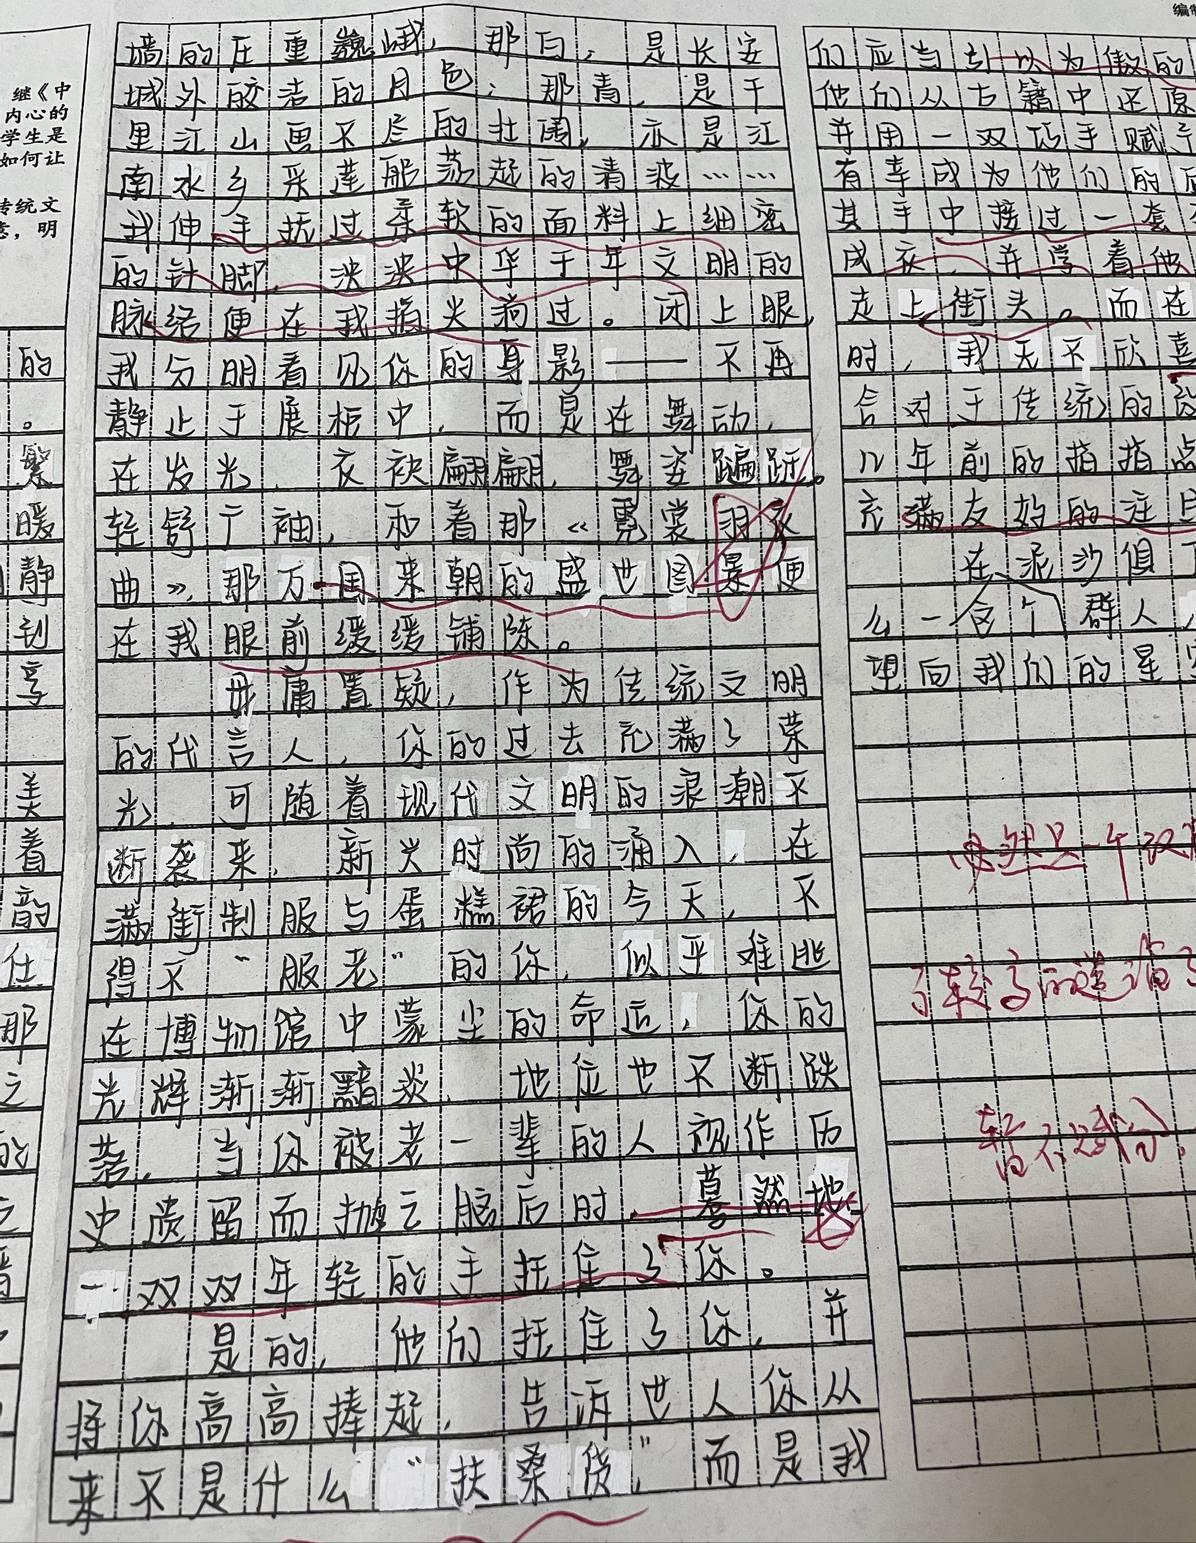 编制
继《中
内心的
学生是
如何让
传统文
意，明
的
。
繁
暖
静
刻
享
美
着
韵
仕
那
之
的
之
墙的庄重巍峨，那白，是长安
城外皎洁的月色；那青，是千
里江山画不尽的壮阔，亦是江
南水乡采莲船荡起的清波……
我伸手抚过柔软的面料上细密
的针脚，泱泱中华千年文明的
脉络便在我指尖淌过。闭上眼，
我分明看见你的身影——不再
静止于展柜中，而是在舞动，
在发光，衣袂翩翩，舞姿蹁跹。
轻舒广袖，和着那《霓裳羽衣
曲》，那万国来朝的盛世图景便
在我眼前缓缓铺陈。
毋庸置疑，作为传统文明
的代言人，你的过去充满了荣
光，可随着现代文明的浪潮不
断袭来，新兴时尚的涌入，在
满街制服与蛋糕裙的今天，不
得不“服老”的你，似乎难逃
在博物馆中蒙尘的命运，你的
光辉渐渐黯淡，地位也不断跌
落，当你被老一辈的人视作历
史遗留而抛之脑后时，蓦然地
一双双年轻的手托住了你。
是的，他们托住了你，并
将你高高捧起，告诉世人你从
来不是什么“扶桑货”，而是我
们应当引以为傲的
他们从古籍中还原
并用一双巧手赋予
有幸成为他们的
其手中接过一套
成衣，并学着他
走上街头。而在
时，我无不欣喜
会对于传统的
几年前的指指点
充满友好的注目
在泥沙俱下
么一个群人
望向我们的星空
必然是一个汉
了较高的